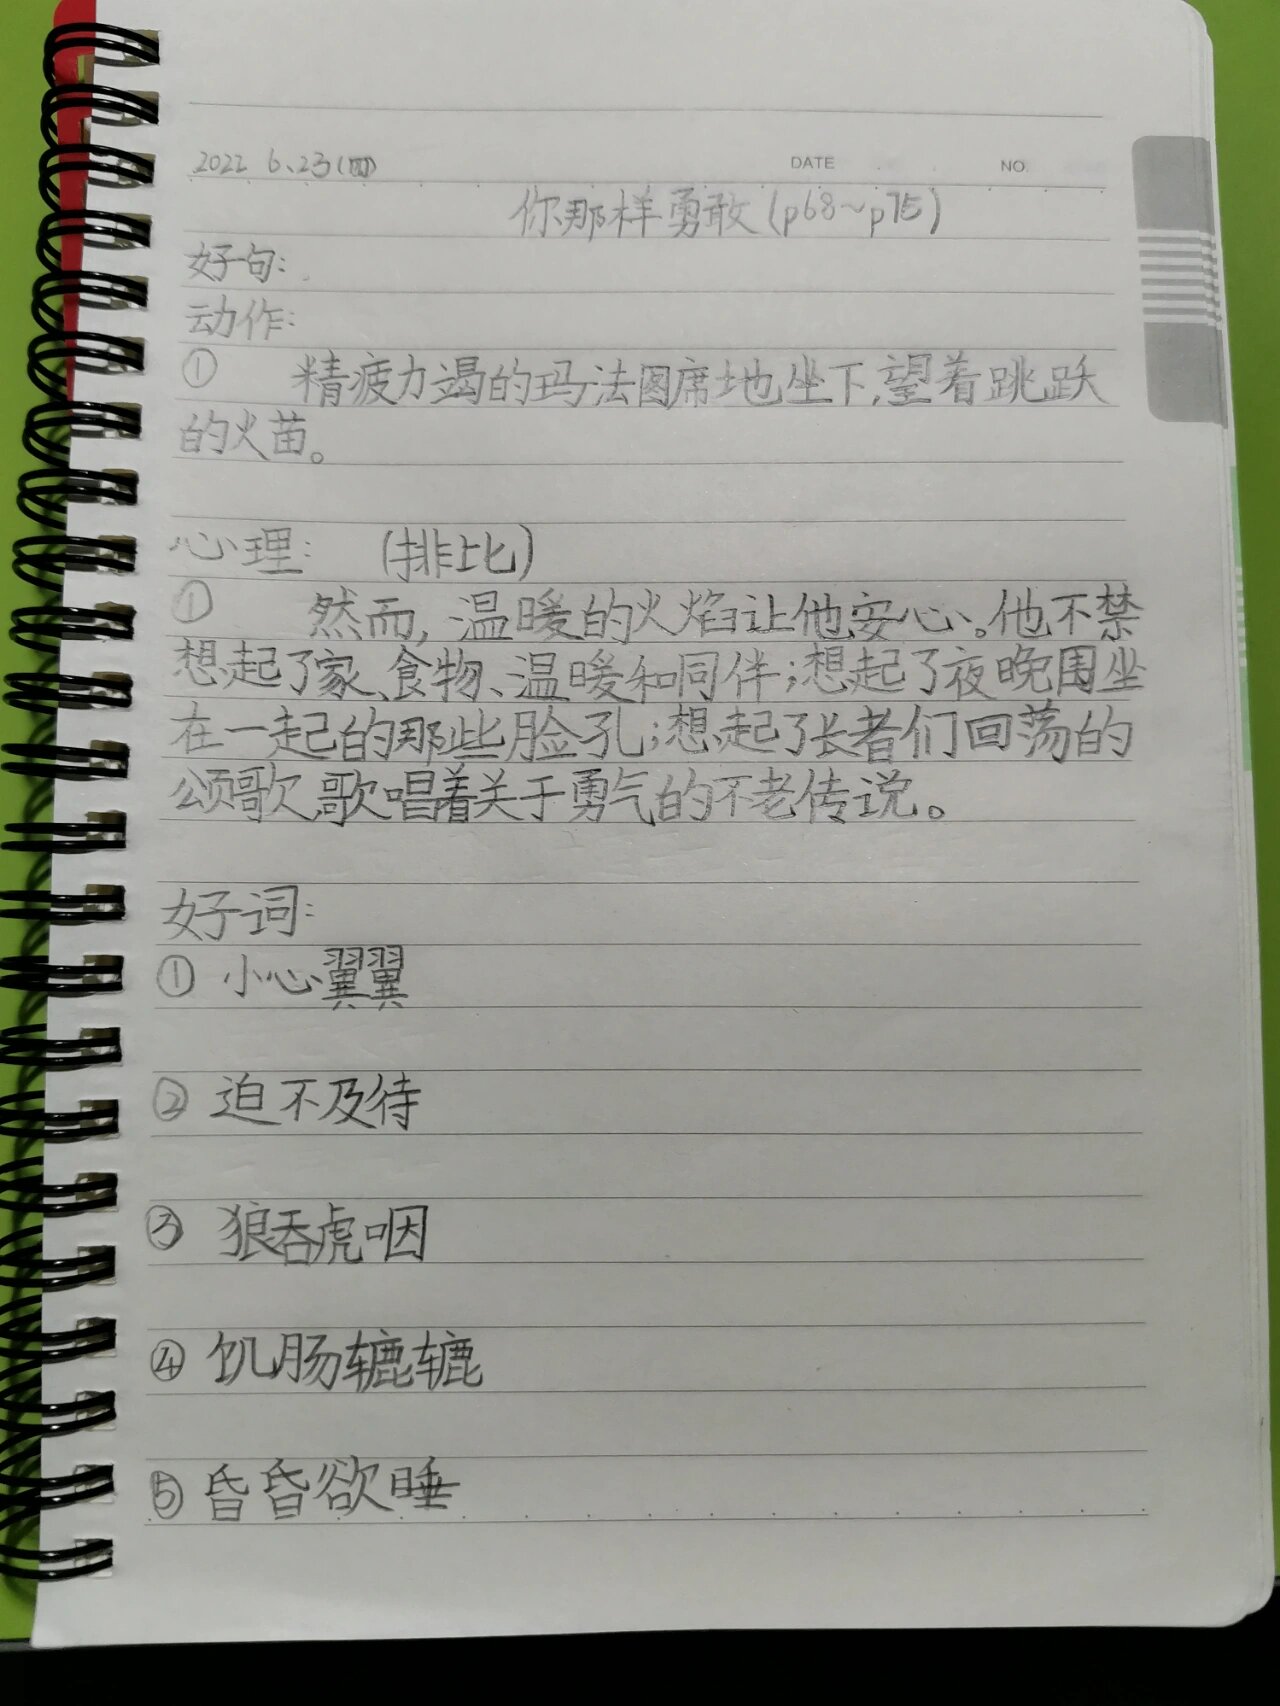 2022 6、23(四)
DATE
NO.
你那样勇敢(p68~p75)
好句:
动作:
① 精疲力竭的玛法图席地坐下,望着跳跃
的火苗。
心理: (排比)
① 然而,温暖的火焰让他安心。他不禁
想起了家、食物、温暖和同伴;想起了夜晚围坐
在一起的那些脸孔;想起了长者们回荡的
颂歌,歌唱着关于勇气的不老传说。
好词:
① 小心翼翼
② 迫不及待
③ 狼吞虎咽
④ 饥肠辘辘
⑤ 昏昏欲睡